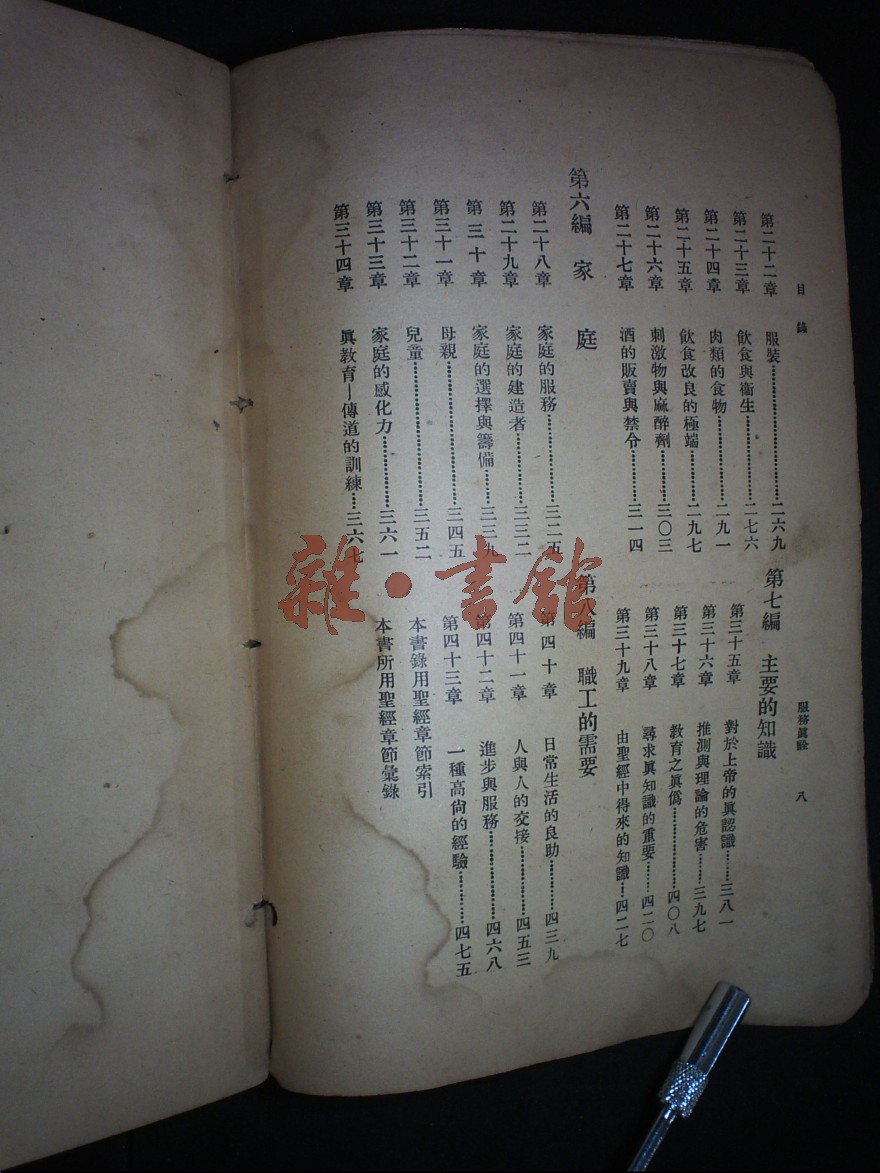 目錄
服務真詮 八
第二十二章 服裝……二六九
第二十三章 飲食與衛生……二七六
第二十四章 肉類的食物……二九一
第二十五章 飲食改良的極端……二九七
第二十六章 刺激物與麻醉劑……三〇三
第二十七章 酒的販賣與禁令……三一四
第六編 家庭
第二十八章 家庭的服務……三二五
第二十九章 家庭的建造者……三三二
第三十章 家庭的選擇與籌備……三三九
第三十一章 母親……三四五
第三十二章 兒童……三五二
第三十三章 家庭的感化力……三六一
第三十四章 眞教育—傳道的訓練…三六七
第七編 主要的知識
第三十五章 對於上帝的眞認識……三八一
第三十六章 推測與理論的危害……三九七
第三十七章 教育之眞僞……四〇八
第三十八章 尋求眞知識的重要……四二〇
第三十九章 由聖經中得來的知識…四二七
第八編 職工的需要
第四十章 日常生活的良助……四三九
第四十一章 人與人的交接……四五三
第四十二章 進步與服務……四六八
第四十三章 一種高尙的經驗……四七五
本書錄用聖經章節索引
本書所用聖經章節彙錄
雜·書館